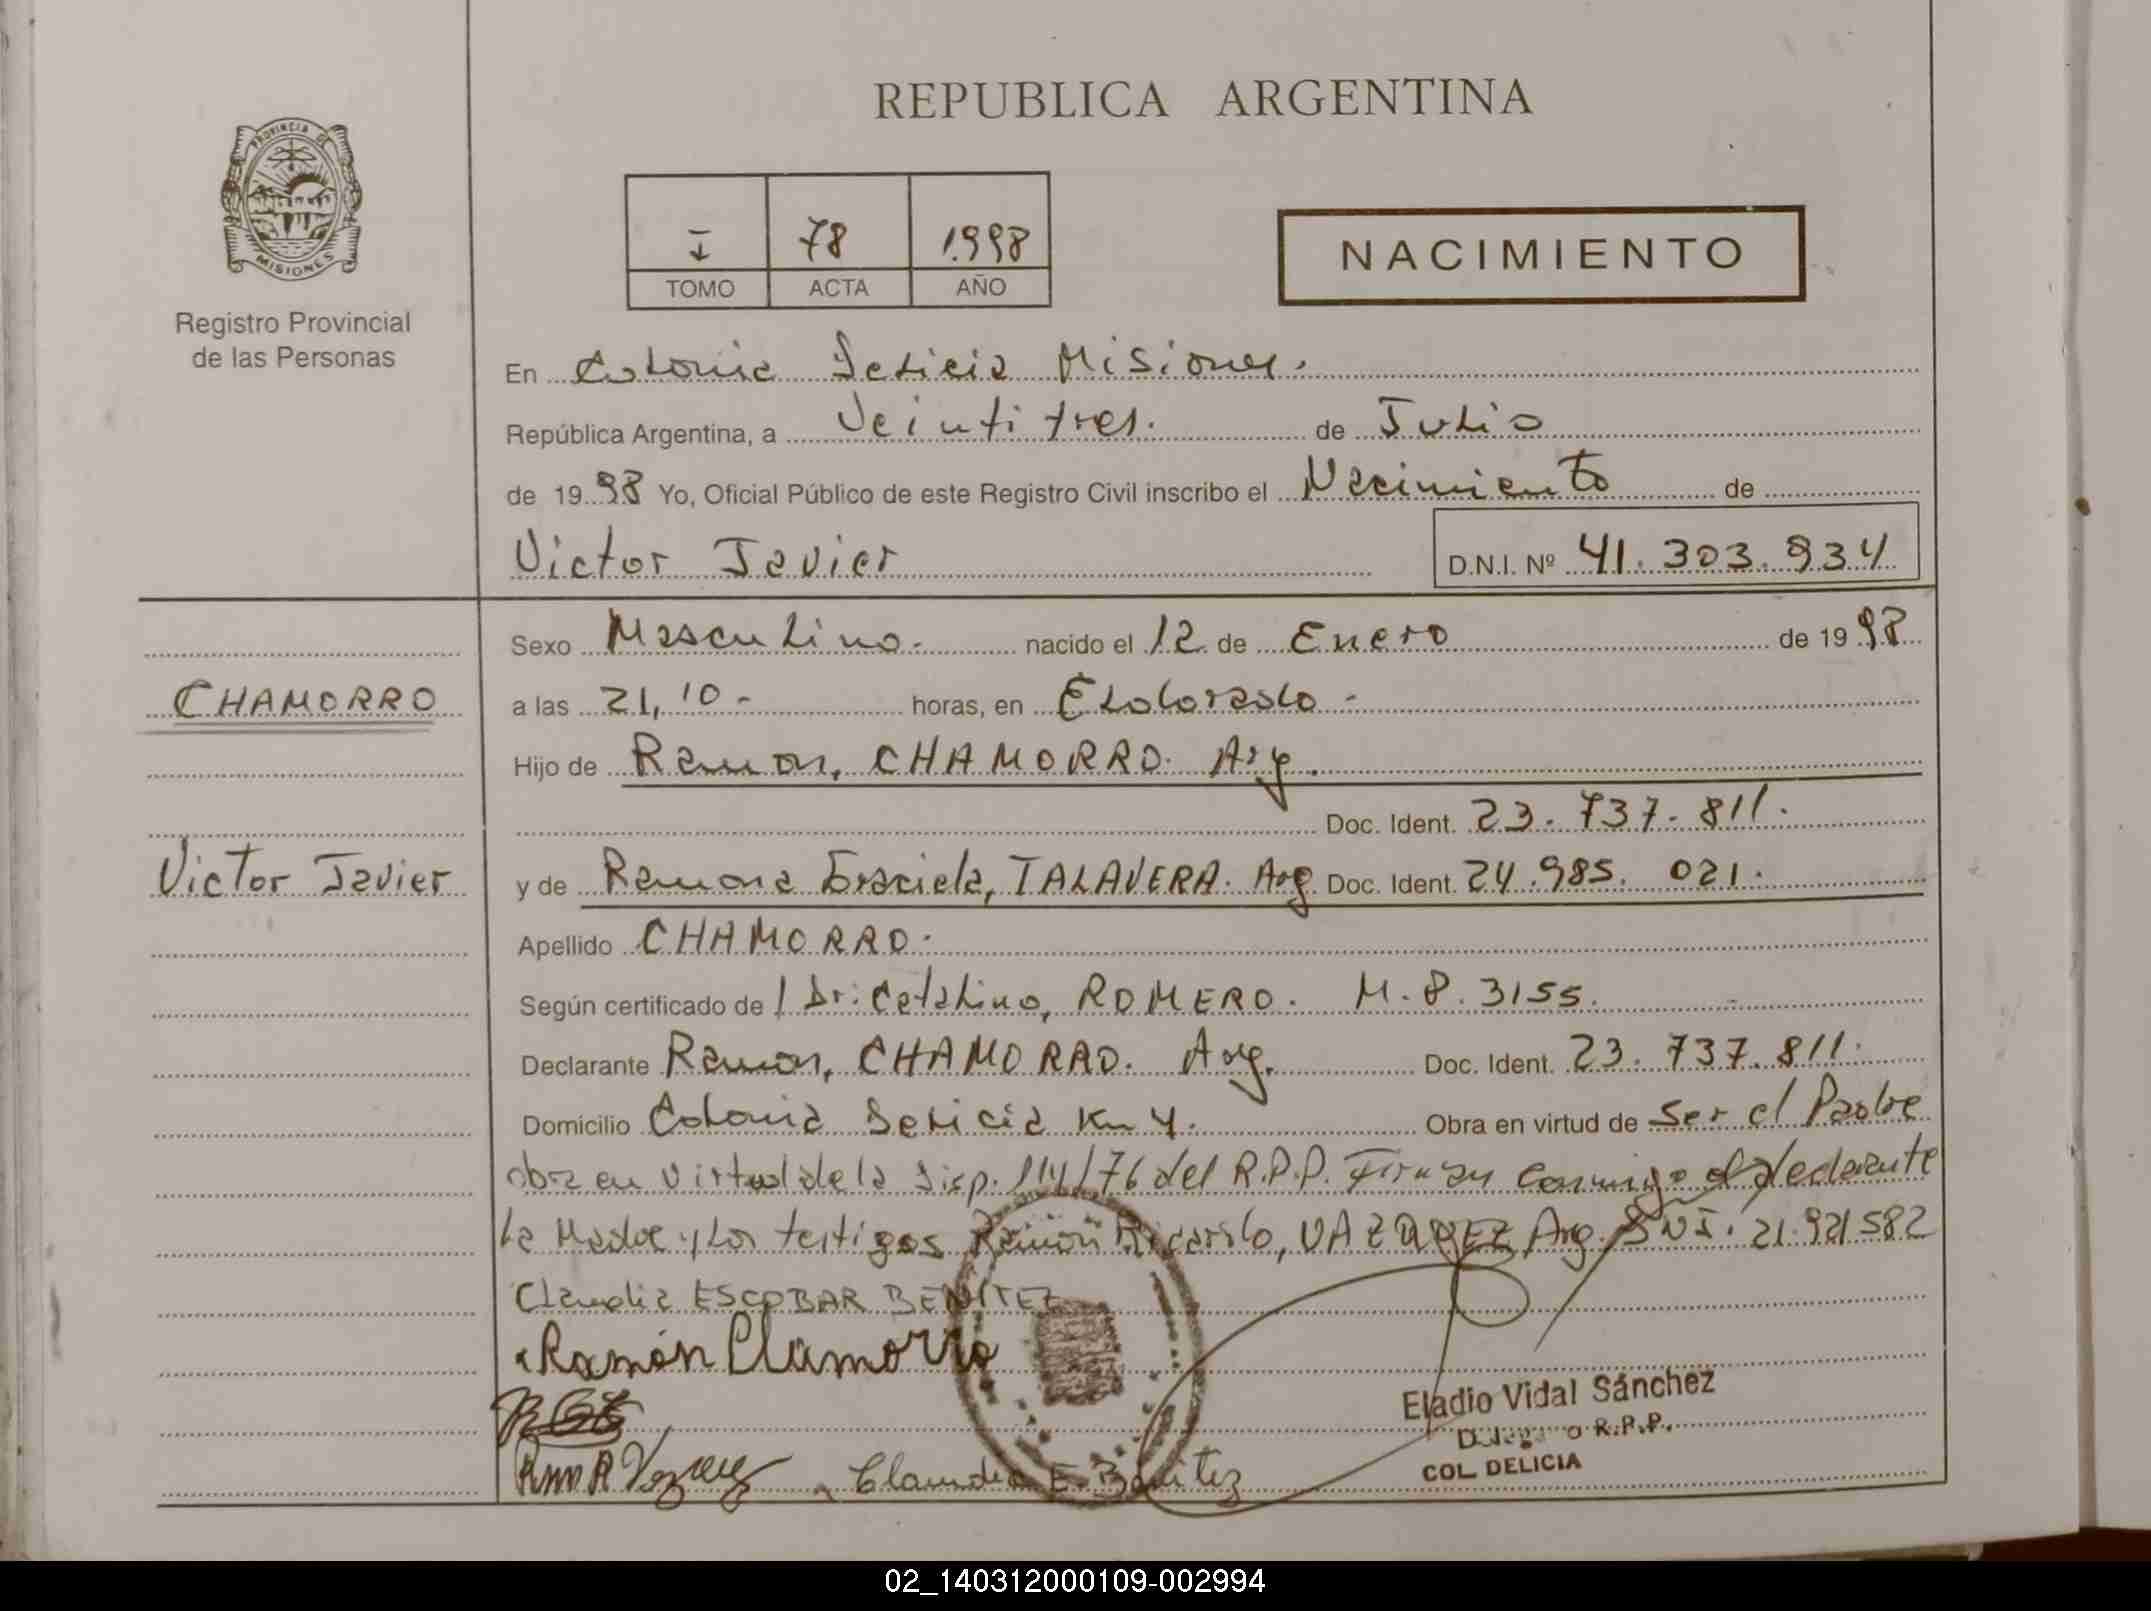 REPUBLICA ARGENTINA
PROVINCIA DE
MISIONES
Registro Provincial
de las Personas
I 78 1.998
TOMO ACTA AÑO
NACIMIENTO
En Colonia Delicia Misiones.
República Argentina, a Veintitres. de Julio
de 1998 Yo, Oficial Público de este Registro Civil inscribo el Nacimiento de
Victor Javier D.N.I. Nº 41.303.934
Sexo Masculino. nacido el 12 de Enero de 1998
CHAMORRO
a las 21,10- horas, en Eldorado -
Hijo de Ramon, CHAMORRO. Arg.
Doc. Ident. 23.737.811.
Victor Javier
y de Ramona Graciela, TALAVERA. Arg Doc. Ident. 24.985.021.
Apellido CHAMORRO.
Según certificado de / Dr: Catalino, ROMERO. M.P. 3155.
Declarante Ramon, CHAMORRO. Arg. Doc. Ident. 23.737.811.
Domicilio Colonia Delicia Km 4. Obra en virtud de Ser el Padre
obra en virtud de la Disp. 114/76 del R.P.P. Firman conmigo el declarante
la Madre y los testigos Ramón Ricardo, VAZQUEZ Arg. DNI. 21.921582
Claudia ESCOBAR BENITEZ
Ramón Chamorro
Eladio Vidal Sánchez
Delegado R.P.P.
COL. DELICIA
Claudia E. Benitez
02_140312000109-002994